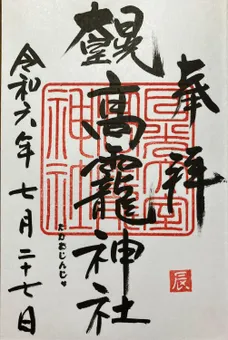 奉拝
晃観堂
高龗神社
たかおじんじゃ
令和六年七月二十七日
辰